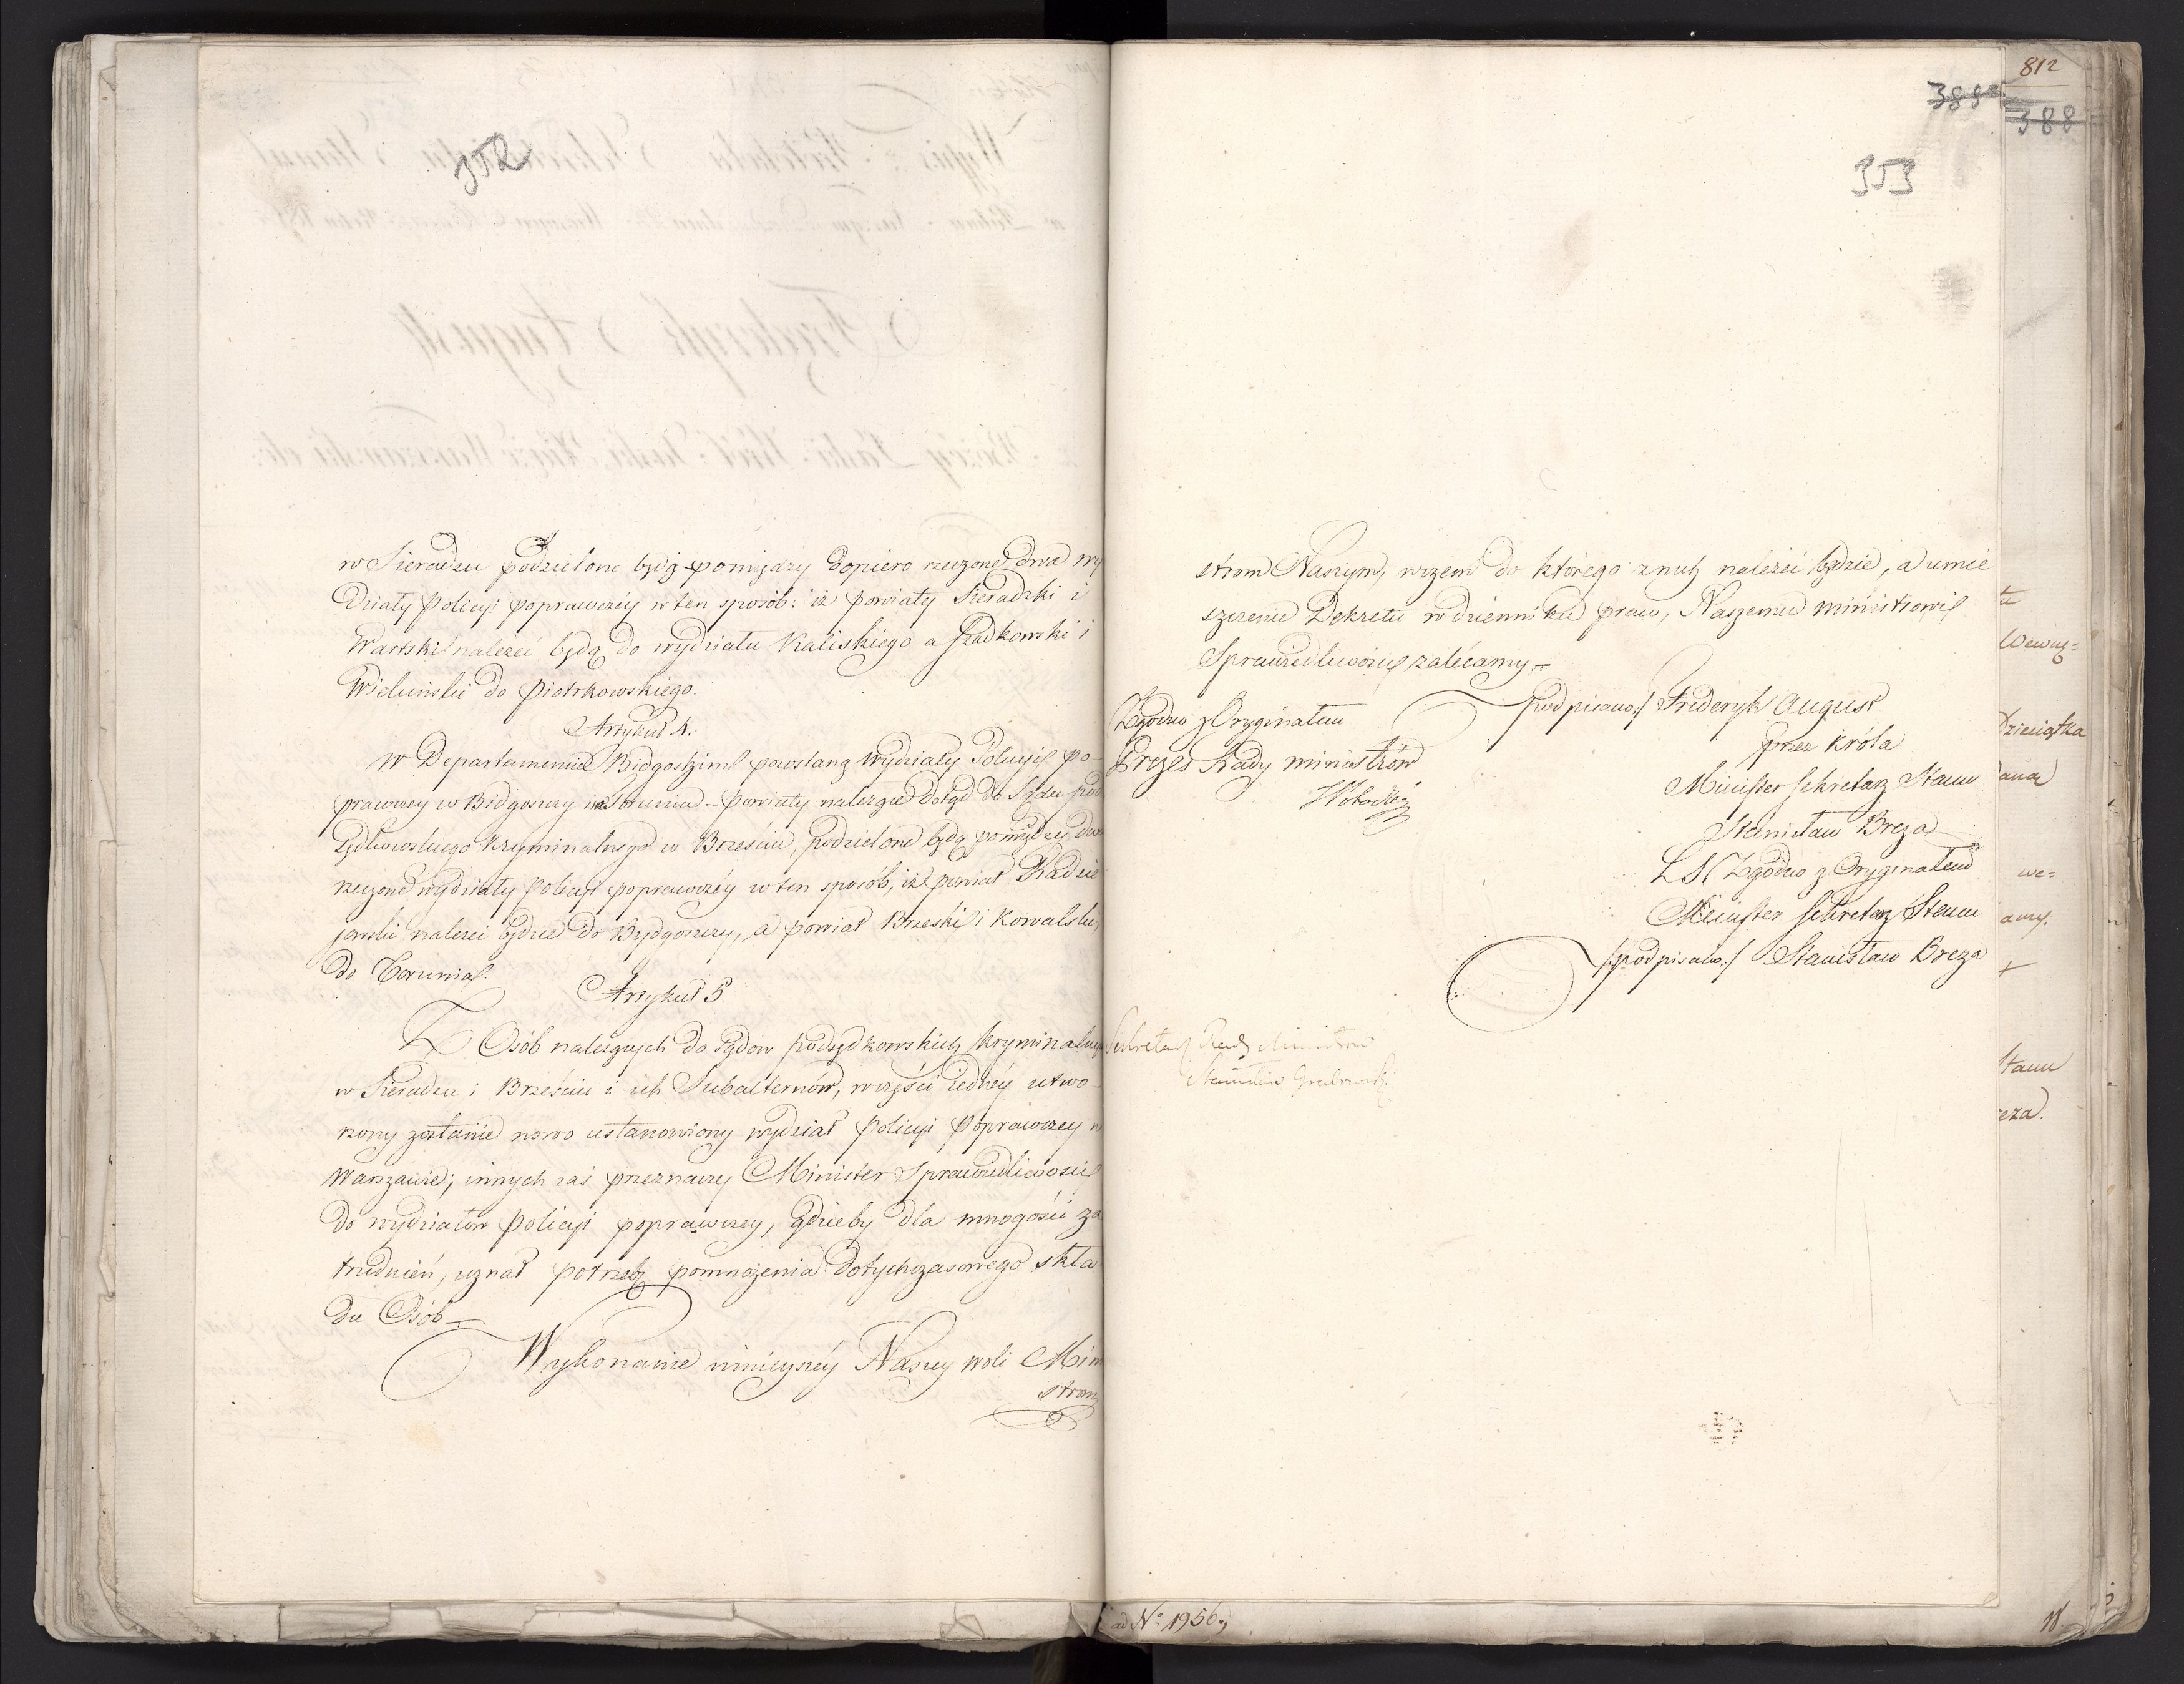 352
w Sieradzu podzielone będą pomiędzy dopiero rzeczone dwa wy
działy Policyi poprawczéy w ten sposób: iż powiaty Sieradzki i
Wartski należeć będą do wydziału Kaliskiego a Szadkowski i
Wieluński do Piotrkowskiego.
Artykuł 4.
W Departamencie Bidgoskim powstaną wydziały Policyi po-
prawczey w Bidgoszczy i w Toruniu – powiaty należące dotąd do Sądu pod
sędkowskiego Kryminalnego w Brześciu, podzielone będą pomiędzy dwa
rzeczone wydziały Policyi poprawczéy w ten sposób, iż powiat Radzie
jewski należeć będzie do Bydgoszczy, a powiat Brzeski i Kowalski,
do Torunia.
Artykuł 5.
Z Osób należących do sądów podsędkowskich kryminalnych
w Sieradzu i Brześciu i ich Subalternów, w części iedney utwo-
rzony zostanie nowo ustanowiony wydział Policyi Poprawczey w
Warszawie; innych zaś przeznaczy Minister Sprawiedliwości
do wydziałów Policyi poprawczey, gdzieby dla mnogości za
trudnień, uznał potrzebę pomnożenia dotychczasowego skła
du Osób –
Wykonanie ninieyszéy Naszey woli Mini
strom
812
388
353
strom Naszym, w czem do którego z nich należeć będzie, a umie
szczenie Dekretu w dzienniku praw, Naszemu ministrowi
Sprawiedliwości zalécamy. –
podpisano:/ Frideryk August
przez króla
Minister Sekretarz Stanu
Stanisław Breza
LS Zgodno z Oryginałem
Minister Sekretarz Stanu
/:podpisano:/ Stanisław Breza
Zgodno z Oryginałem
Prezes Rady ministrów
Sekretarz Rady Ministrów
Stanisław Grabowski
Wewnę=
Dzieciątka
we=
Stanu
eza.
ad No. 1956.